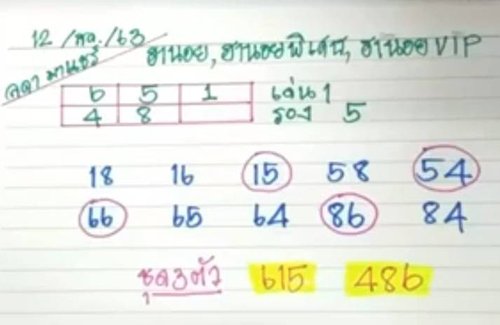 12 /พย./63
ลดา มานธร์ ฮานอย, ฮานอยพิเศษ, ฮานอย VIP
6 5 1 เด่น 1
4 8 รอง 5
18 16 15 58 54
66 65 64 86 84
ชุด 3 ตัว 615 486